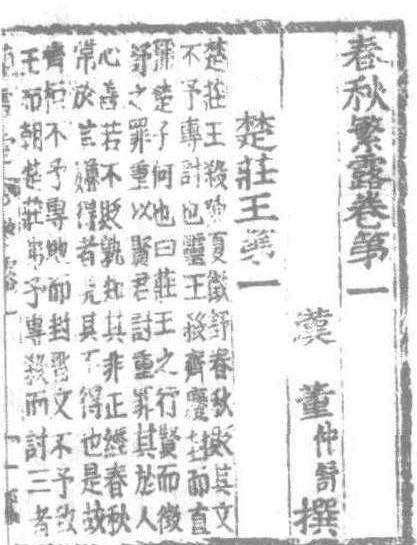 春秋繁露卷第一
漢 董仲舒 撰
楚莊王第一
楚莊王殺陳夏徵舒春秋貶其文
不予專討也靈王殺齊慶封而直
稱楚子何也曰莊王之行賢而徵
舒之罪重以賢君討重罪其於人
心善若不貶孰知其非正經春秋
常於其嫌得者見其不得也是故
齊桓不予專地而封晉文不予致
王而朝楚莊弗予專殺而討三者